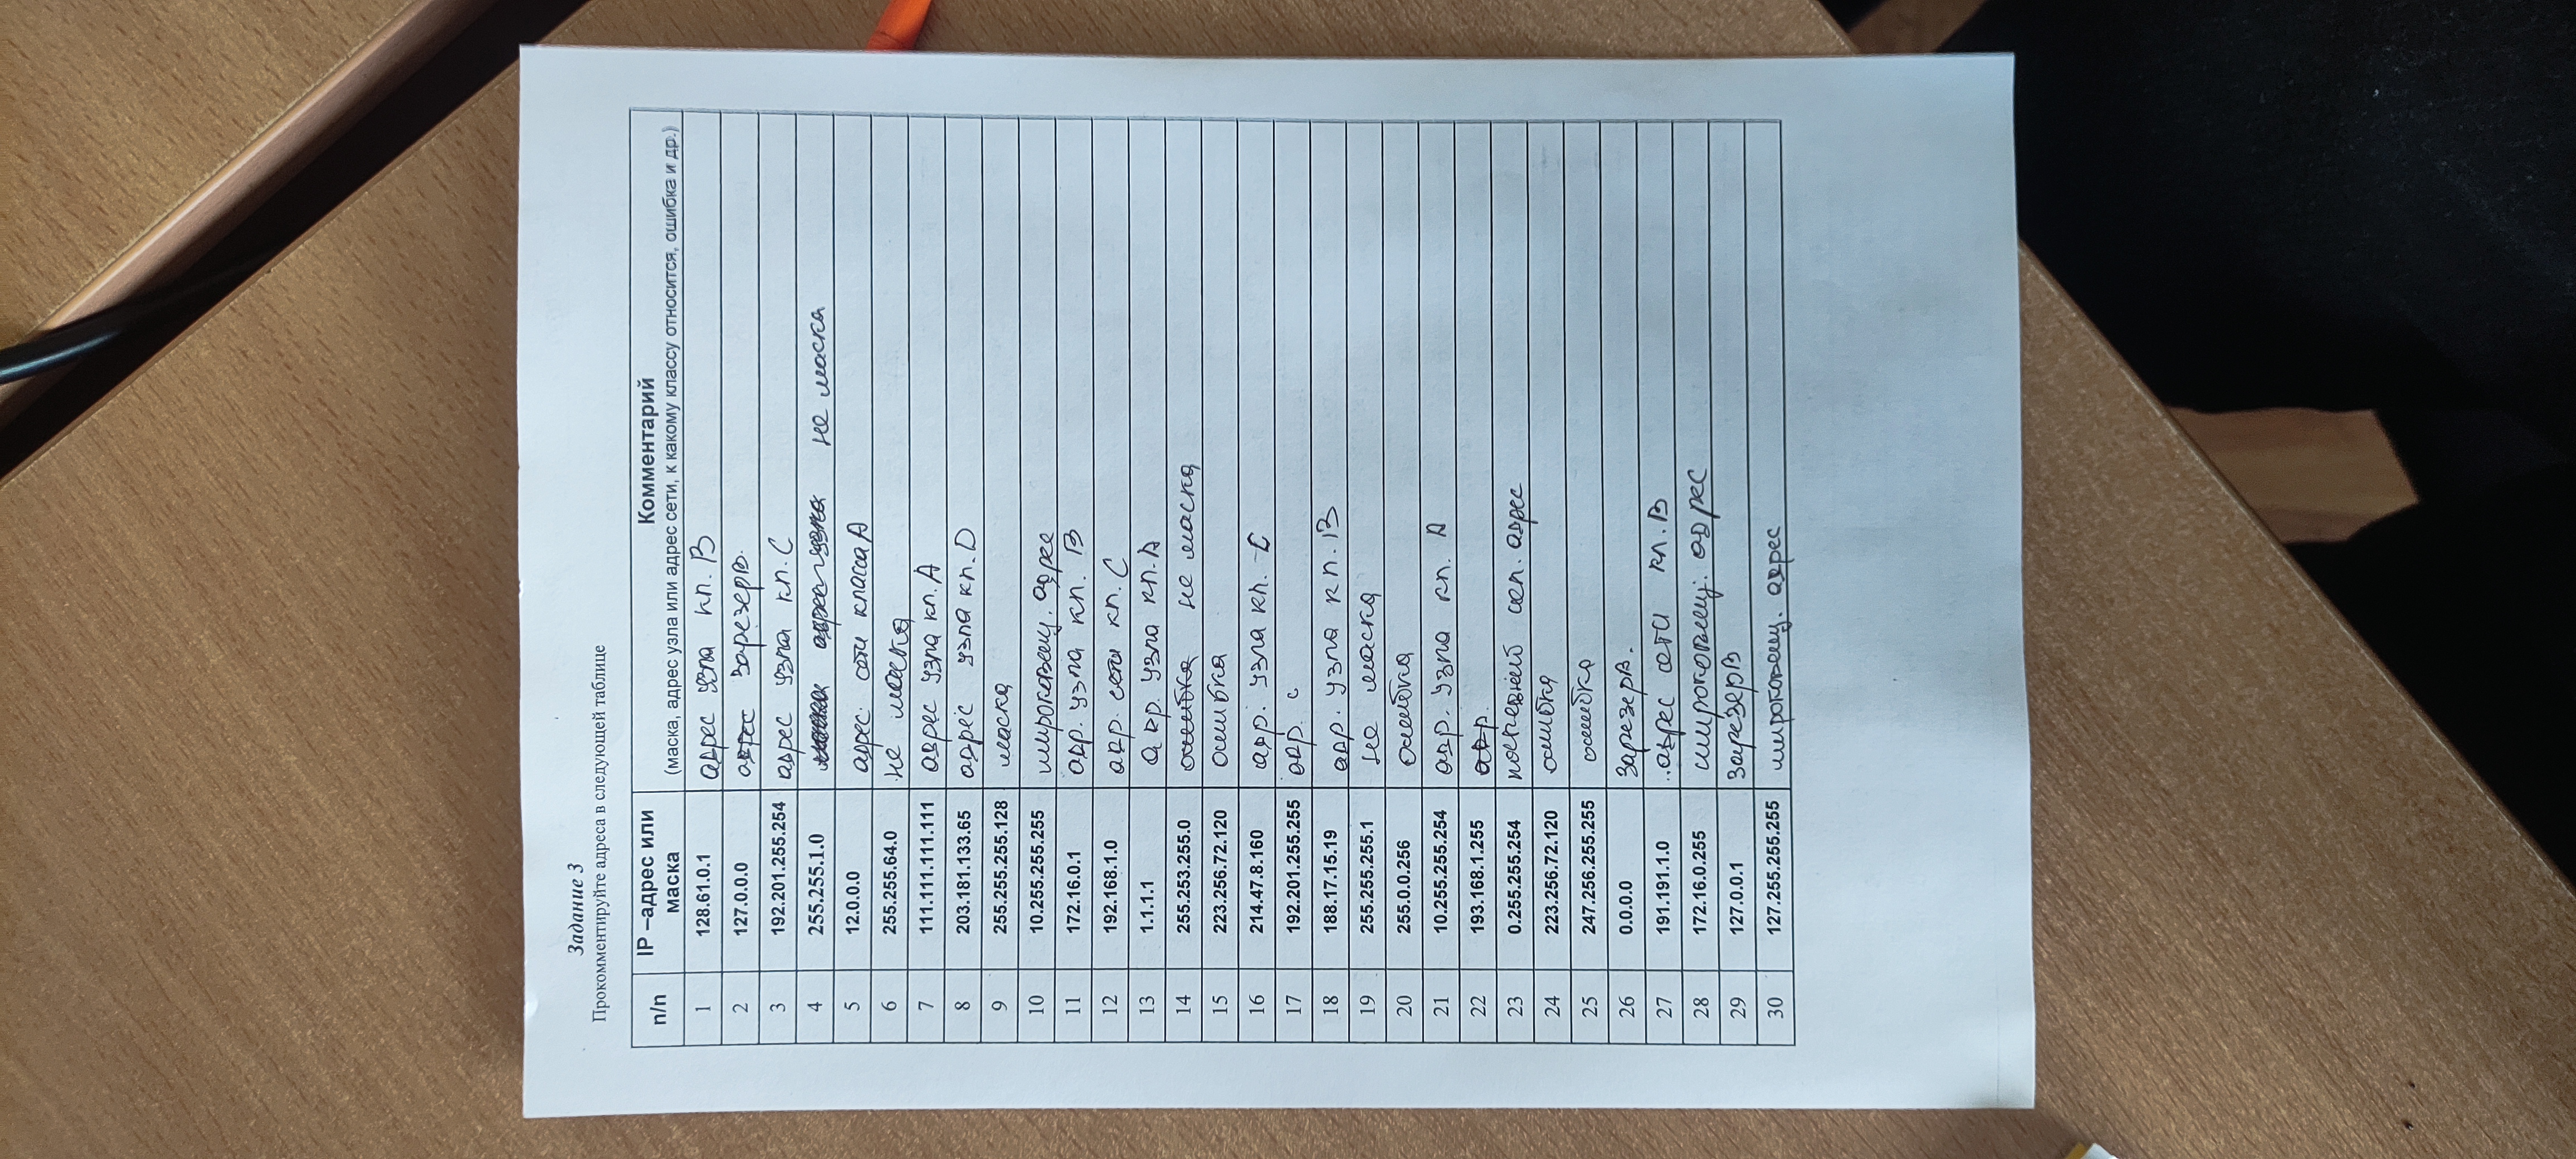 Задание 3
Прокомментируйте адреса в следующей таблице
п/п IP –адрес или маска Комментарий
(маска, адрес узла или адрес сети, к какому классу относится, ошибка и др.)
1 128.61.0.1 адрес узла кл. B
2 127.0.0.0 адрес зарезерв.
3 192.201.255.254 адрес узла кл. C
4 255.255.1.0 адрес узла не маска
5 12.0.0.0 адрес. сети класса A
6 255.255.64.0 не маска
7 111.111.111.111 адрес узла кл. A
8 203.181.133.65 адрес узла кл. D
9 255.255.255.128 маска
10 10.255.255.255 широковещ. адрес
11 172.16.0.1 адр. узла кл. B
12 192.168.1.0 адр. сети кл. C
13 1.1.1.1 адр. узла кл. A
14 255.253.255.0 ошибка не маска
15 223.256.72.120 ошибка
16 214.47.8.160 адр. узла кл. C
17 192.201.255.255 адр. с
18 188.17.15.19 адр. узла кл. B
19 255.255.255.1 не маска
20 255.0.0.256 ошибка
21 10.255.255.254 адр. узла кл. A
22 193.168.1.255 адр.
23 0.255.255.254 адрес
24 223.256.72.120 ошибка
25 247.256.255.255 ошибка
26 0.0.0.0 зарезерв.
27 191.191.1.0 адрес сети кл. B
28 172.16.0.255 широковещ. адрес
29 127.0.0.1 зарезерв
30 127.255.255.255 широковещ. адрес